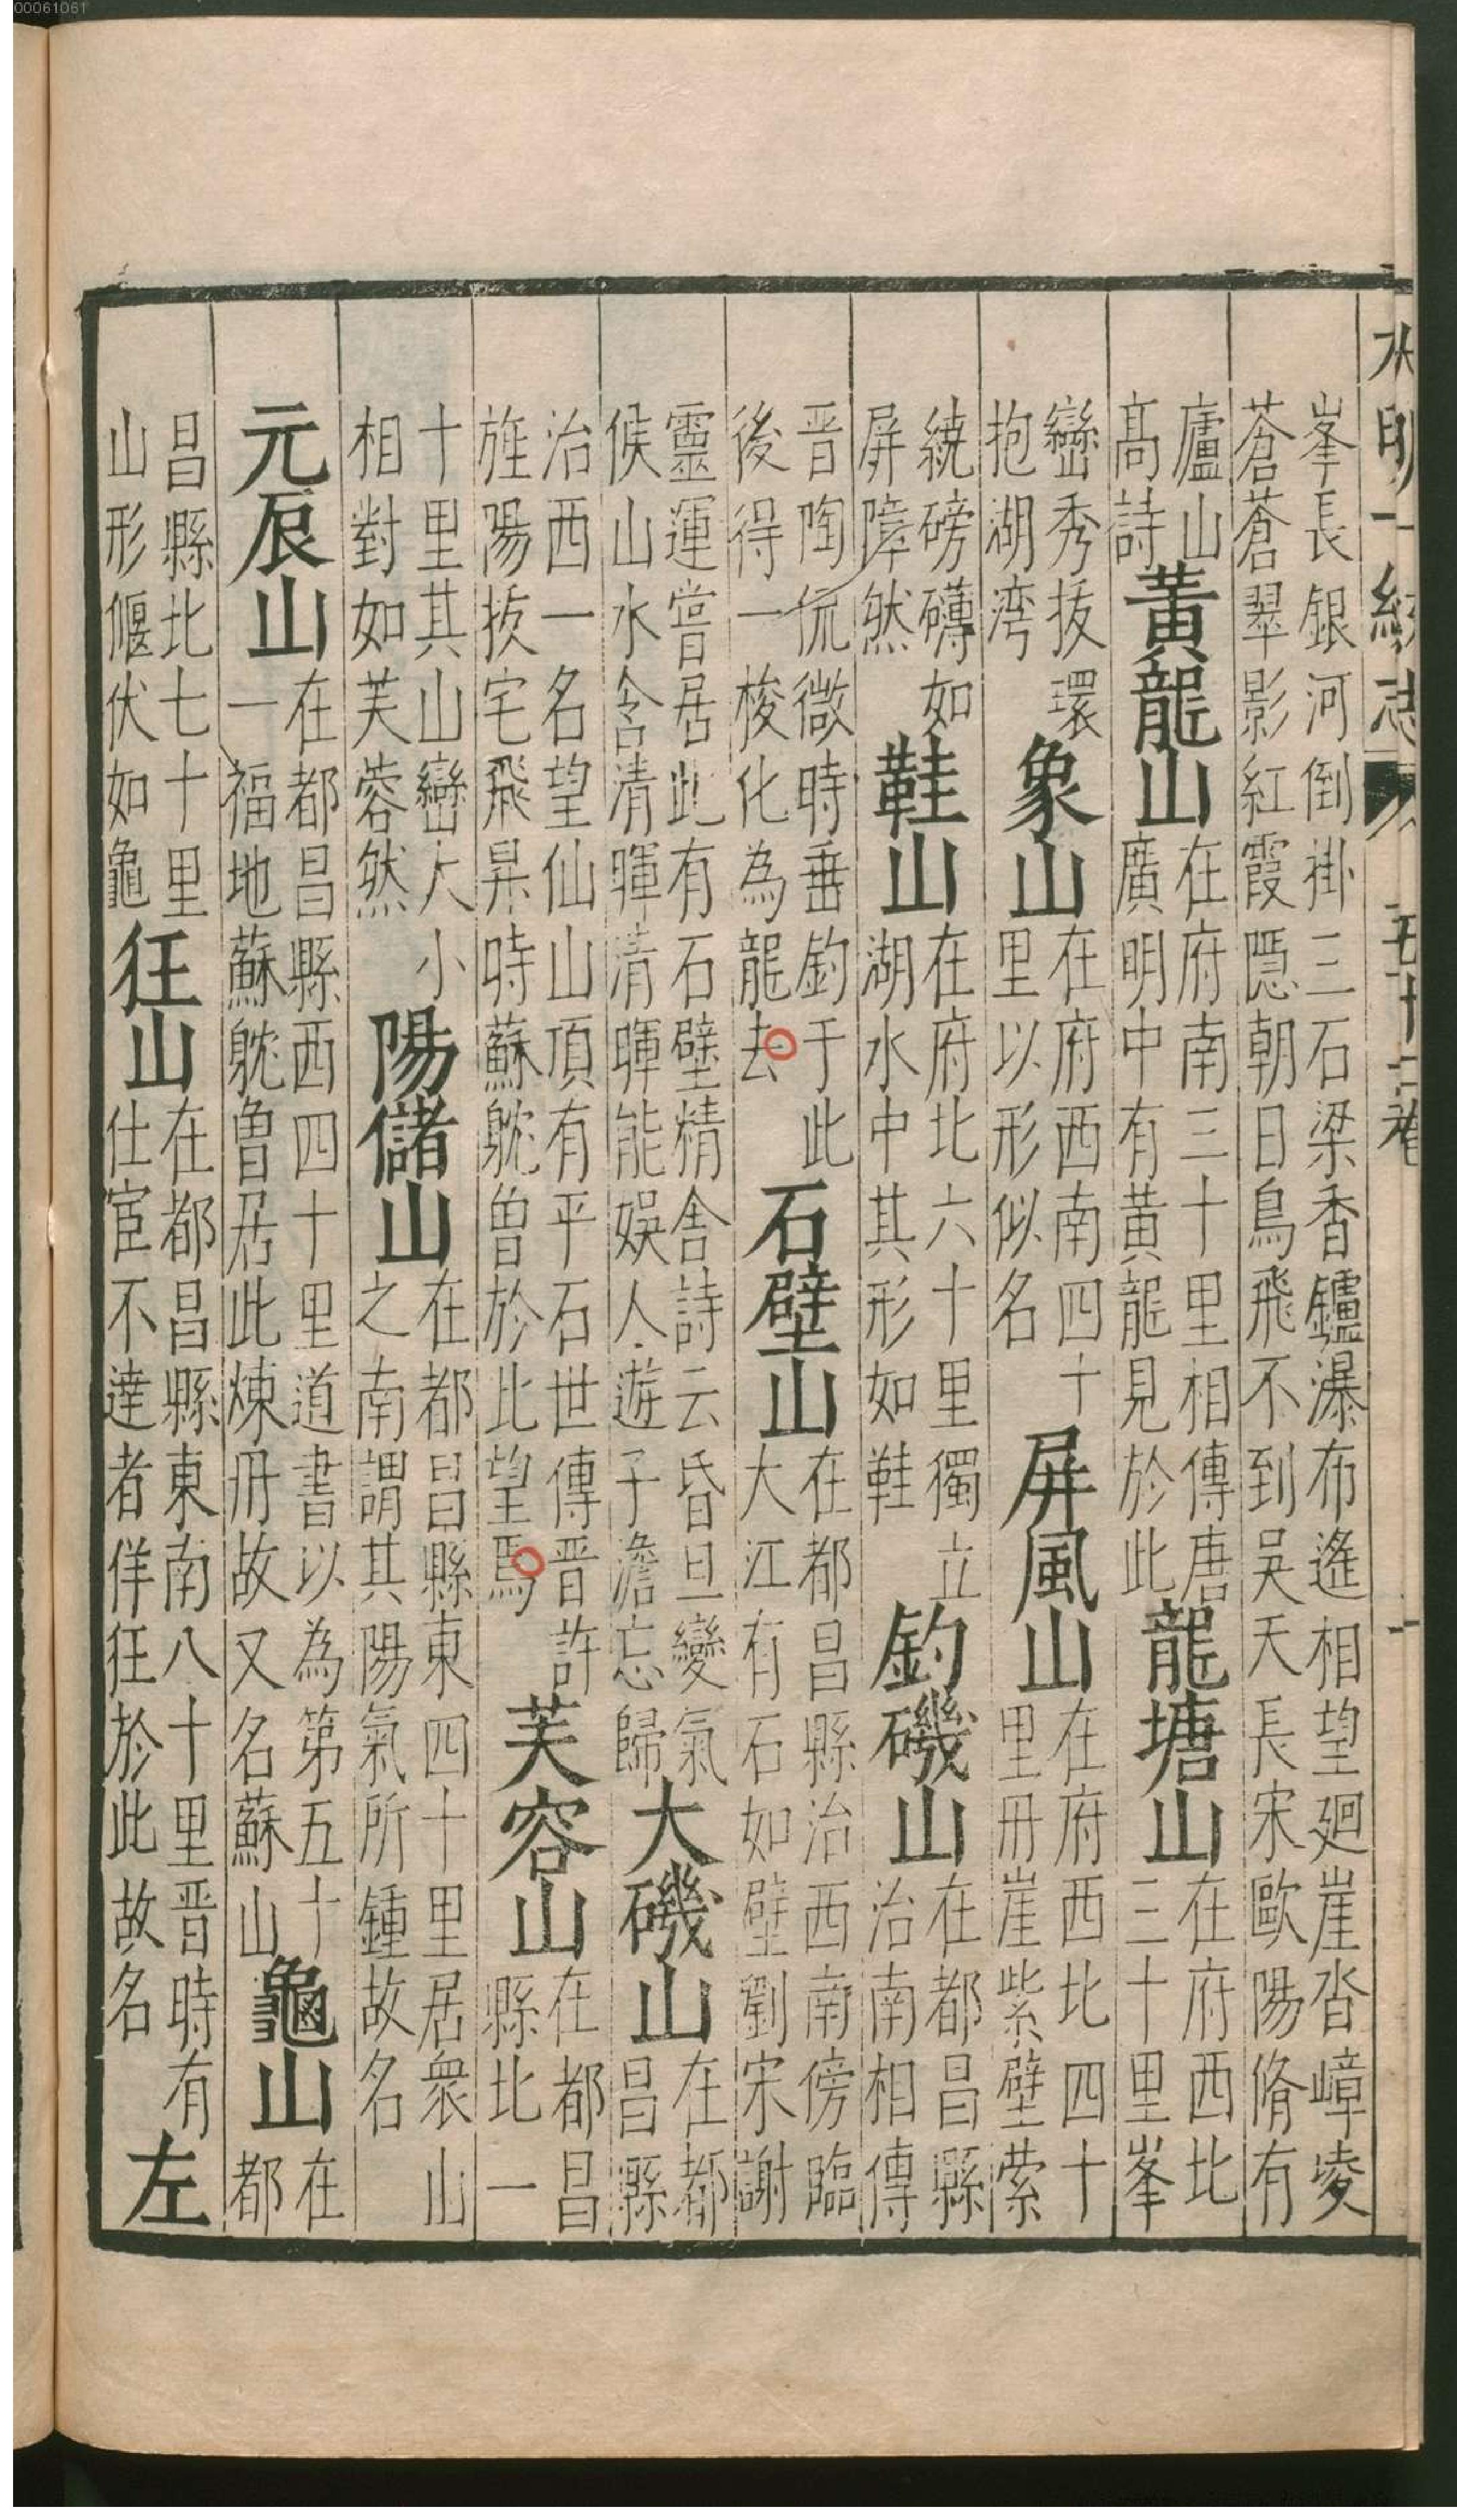 00061061
大明一統志 五十二卷
峯長銀河倒掛三石梁香鑪瀑布遙相望廻崖沓嶂凌
蒼蒼翠影紅霞隱朝日鳥飛不到吳天長宋歐陽脩有
廬山高詩黃龍山在府南三十里相傳唐廣明中有黃龍見於此龍塘山在府西北三十里峯
巒秀拔環抱湖湾象山在府西南四十里以形似名屏風山在府西北四十里丹崖紫壁縈
繞磅礴如屏障然鞋山在府北六十里獨立湖水中其形如鞋釣磯山在都昌縣治南相傳
晉陶侃微時垂釣于此後得一梭化為龍去石壁山在都昌縣治西南傍臨大江有石如壁劉宋謝
靈運嘗居此有石壁精舍詩云昏旦變氣候山水含清暉清暉能娛人遊子澹忘歸大磯山在都昌縣
治西一名望仙山頂有平石世傳晉許旌陽拔宅飛昇時蘇躭曾於此望焉芙容山在都昌縣北一
十里其山巒大小相對如芙蓉然陽儲山在都昌縣東四十里居衆山之南謂其陽氣所鍾故名
元辰山在都昌縣西四十里道書以為第五十一福地蘇躭曾居此煉丹故又名蘇山龜山在都
昌縣北七十里山形偃伏如龜狂山在都昌縣東南八十里晉時有仕宦不達者佯狂於此故名左